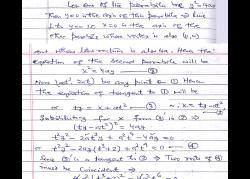 Let one of the parabola be y²=4ax
then y=0 is the axis of the parabola ⇒ line
to y=0 is x=0 is the axis of the
other parabola whose vertex is also (0,0)
and whose latus rectum is also 4a. Hence the
equation of the second parabola will be
x²=4ay — ②
Now (at², 2at) be any point on ① Hence
the equation of tangent to ① will be
or ty = x+at² — ③ ∴ x = ty-at²
Substituting for x from ③ in ②
(ty-at²)² = 4ay
t²y² - 2at³y + a²t⁴ - 4ay = 0
or t²y² - 2ay(t³+2) + a²t⁴ = 0 — ④
Since ③ is a tangent to ② ⇒ Two roots of ④
must be Coincident ⇒